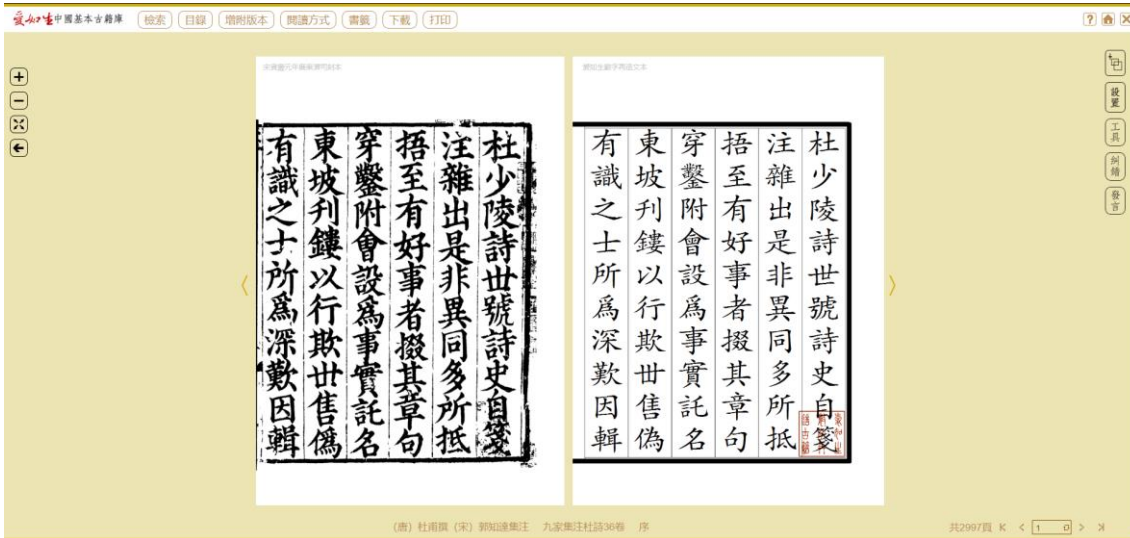 愛如生中國基本古籍庫 檢索 目錄 增附版本 閱讀方式 書籤 下載 打印
設置
工具
糾錯
發言
宋寶慶元年廣東漕司刻本
杜少陵詩世號詩史自箋
注雜出是非異同多所抵
捂至有好事者掇其章句
穿鑿附會設爲事實託名
東坡刋鏤以行欺世售僞
有識之士所爲深歎因輯
杜少陵詩世號詩史自箋
注雜出是非異同多所抵
捂至有好事者掇其章句
穿鑿附會設爲事實託名
東坡刋鏤以行欺丗售偽
有識之士所爲深歎因輯
(唐)杜甫撰(宋)郭知達集注 九家集注杜詩36卷 序
共2997頁 K < 1 > ›|